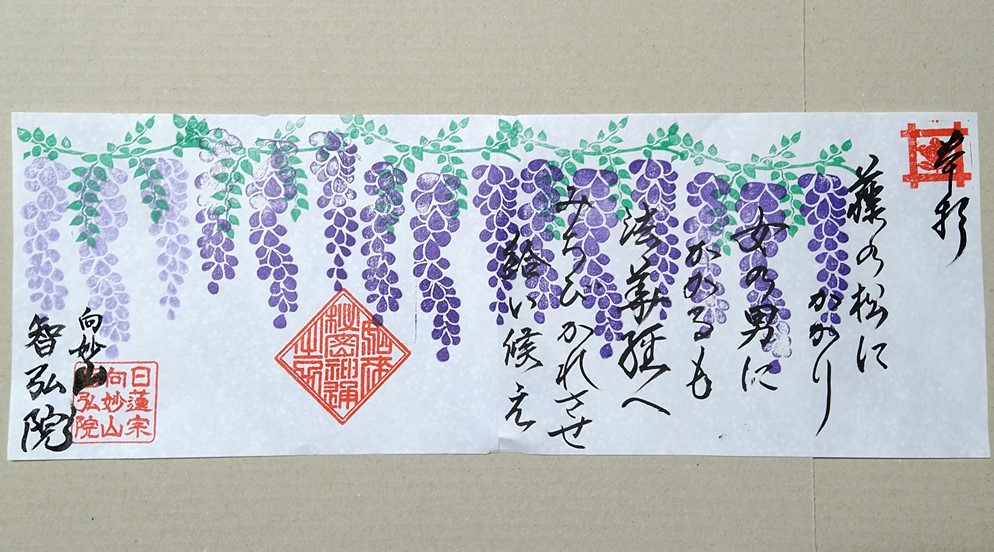 奉拝
藤の松に
かかり
女の男に
かかるも
法華経へ
みちびかれさせ
給い候え
如来
秘密神通
之力
向妙山
智弘院
日蓮宗
向妙山
弘院